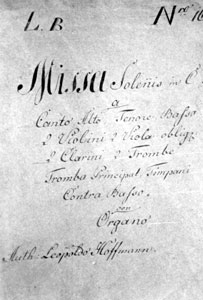 L. B
Nro 16
Missa Solenis in C
a
Canto Alto Tenore Basso
2 Violini 2 Viola oblig:
2 Clarini 2 Trombe
Tromba Principal Timpani
Contra Basso.
con
Organo
Auth: Leopoldo Hoffmann